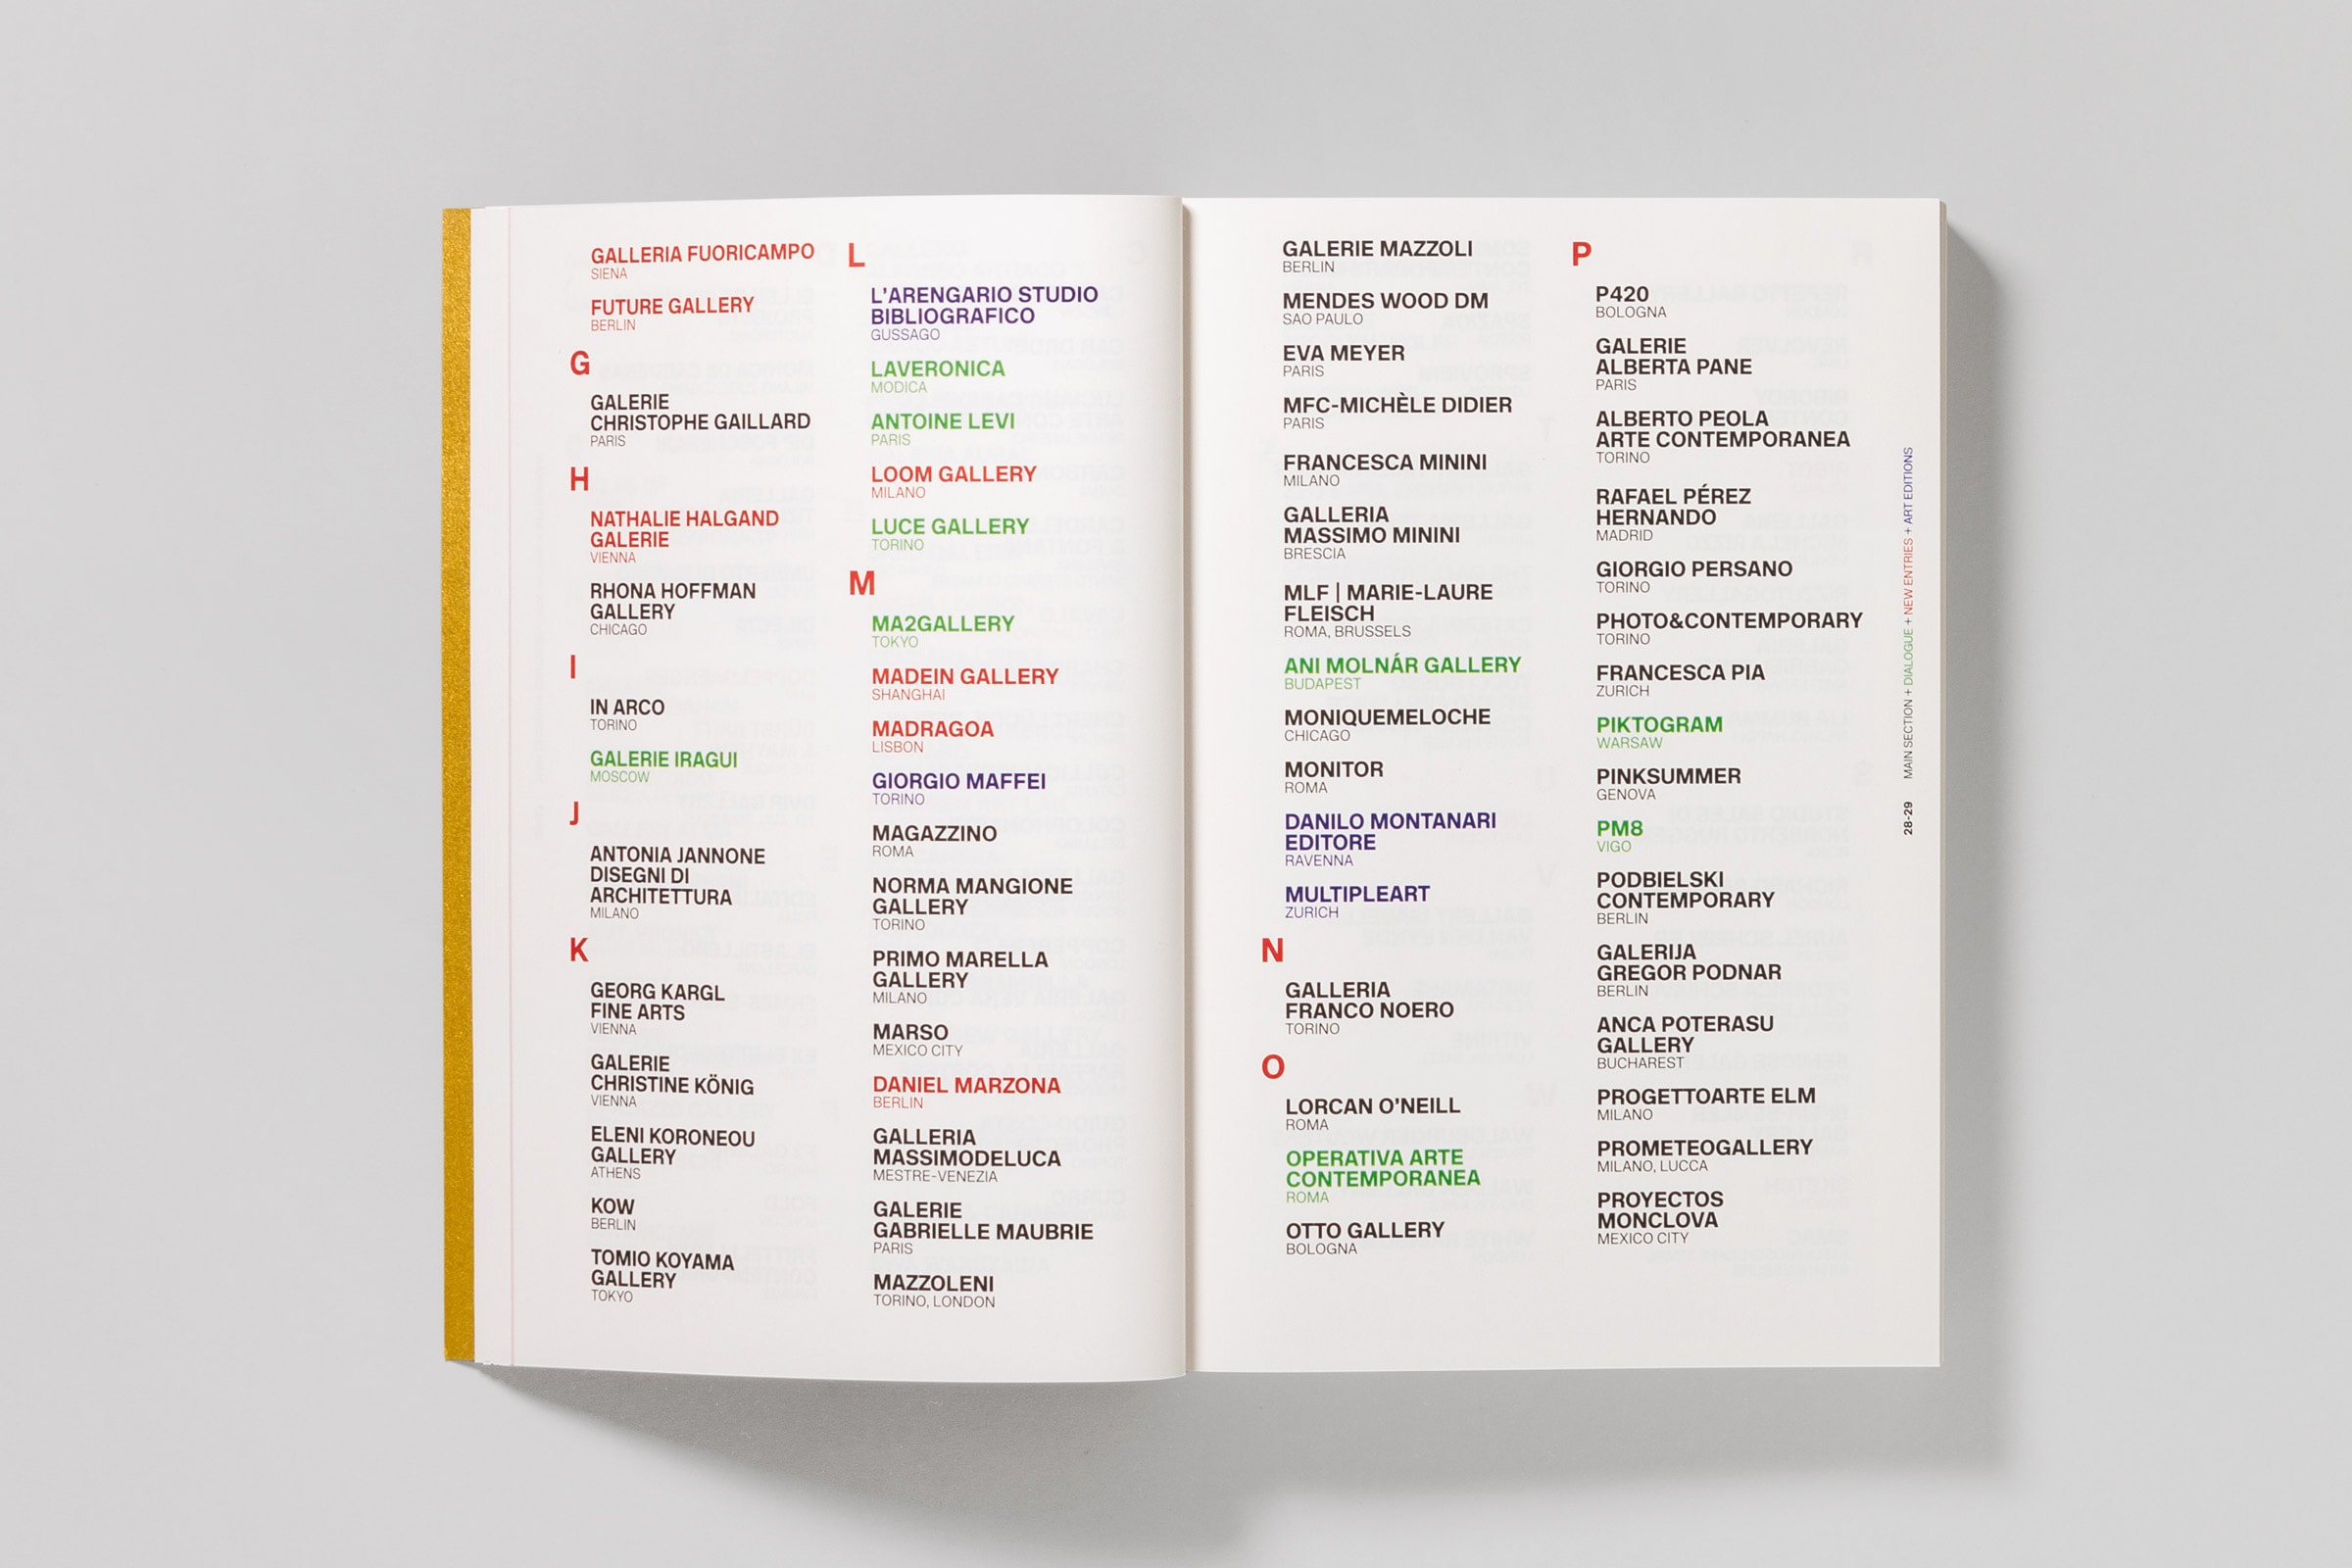 GALLERIA FUORICAMPO
SIENA
FUTURE GALLERY
BERLIN
G
GALERIE
CHRISTOPHE GAILLARD
PARIS
H
NATHALIE HALGAND
GALERIE
VIENNA
RHONA HOFFMAN
GALLERY
CHICAGO
I
IN ARCO
TORINO
GALERIE IRAGUI
MOSCOW
J
ANTONIA JANNONE
DISEGNI DI
ARCHITETTURA
MILANO
K
GEORG KARGL
FINE ARTS
VIENNA
GALERIE
CHRISTINE KÖNIG
VIENNA
ELENI KORONEOU
GALLERY
ATHENS
KOW
BERLIN
TOMIO KOYAMA
GALLERY
TOKYO
L
L'ARENGARIO STUDIO
BIBLIOGRAFICO
GUSSAGO
LAVERONICA
MODICA
ANTOINE LEVI
PARIS
LOOM GALLERY
MILANO
LUCE GALLERY
TORINO
M
MA2GALLERY
TOKYO
MADEIN GALLERY
SHANGHAI
MADRAGOA
LISBON
GIORGIO MAFFEI
TORINO
MAGAZZINO
ROMA
NORMA MANGIONE
GALLERY
TORINO
PRIMO MARELLA
GALLERY
MILANO
MARSO
MEXICO CITY
DANIEL MARZONA
BERLIN
GALLERIA
MASSIMODELUCA
MESTRE-VENEZIA
GALERIE
GABRIELLE MAUBRIE
PARIS
MAZZOLENI
TORINO, LONDON
GALERIE MAZZOLI
BERLIN
MENDES WOOD DM
SAO PAULO
EVA MEYER
PARIS
MFC-MICHÈLE DIDIER
PARIS
FRANCESCA MININI
MILANO
GALLERIA
MASSIMO MININI
BRESCIA
MLF | MARIE-LAURE
FLEISCH
ROMA, BRUSSELS
ANI MOLNÁR GALLERY
BUDAPEST
MONIQUEMELOCHE
CHICAGO
MONITOR
ROMA
DANILO MONTANARI
EDITORE
RAVENNA
MULTIPLEART
ZURICH
N
GALLERIA
FRANCO NOERO
TORINO
O
LORCAN O'NEILL
ROMA
OPERATIVA ARTE
CONTEMPORANEA
ROMA
OTTO GALLERY
BOLOGNA
P
P420
BOLOGNA
GALERIE
ALBERTA PANE
PARIS
ALBERTO PEOLA
ARTE CONTEMPORANEA
TORINO
RAFAEL PÉREZ
HERNANDO
MADRID
GIORGIO PERSANO
TORINO
PHOTO&CONTEMPORARY
TORINO
FRANCESCA PIA
ZURICH
PIKTOGRAM
WARSAW
PINKSUMMER
GENOVA
PM8
VIGO
PODBIELSKI
CONTEMPORARY
BERLIN
GALERIJA
GREGOR PODNAR
BERLIN
ANCA POTERASU
GALLERY
BUCHAREST
PROGETTOARTE ELM
MILANO
PROMETEOGALLERY
MILANO, LUCCA
PROYECTOS
MONCLOVA
MEXICO CITY
28-29 MAIN SECTION + DIALOGUE + NEW ENTRIES + ART EDITIONS